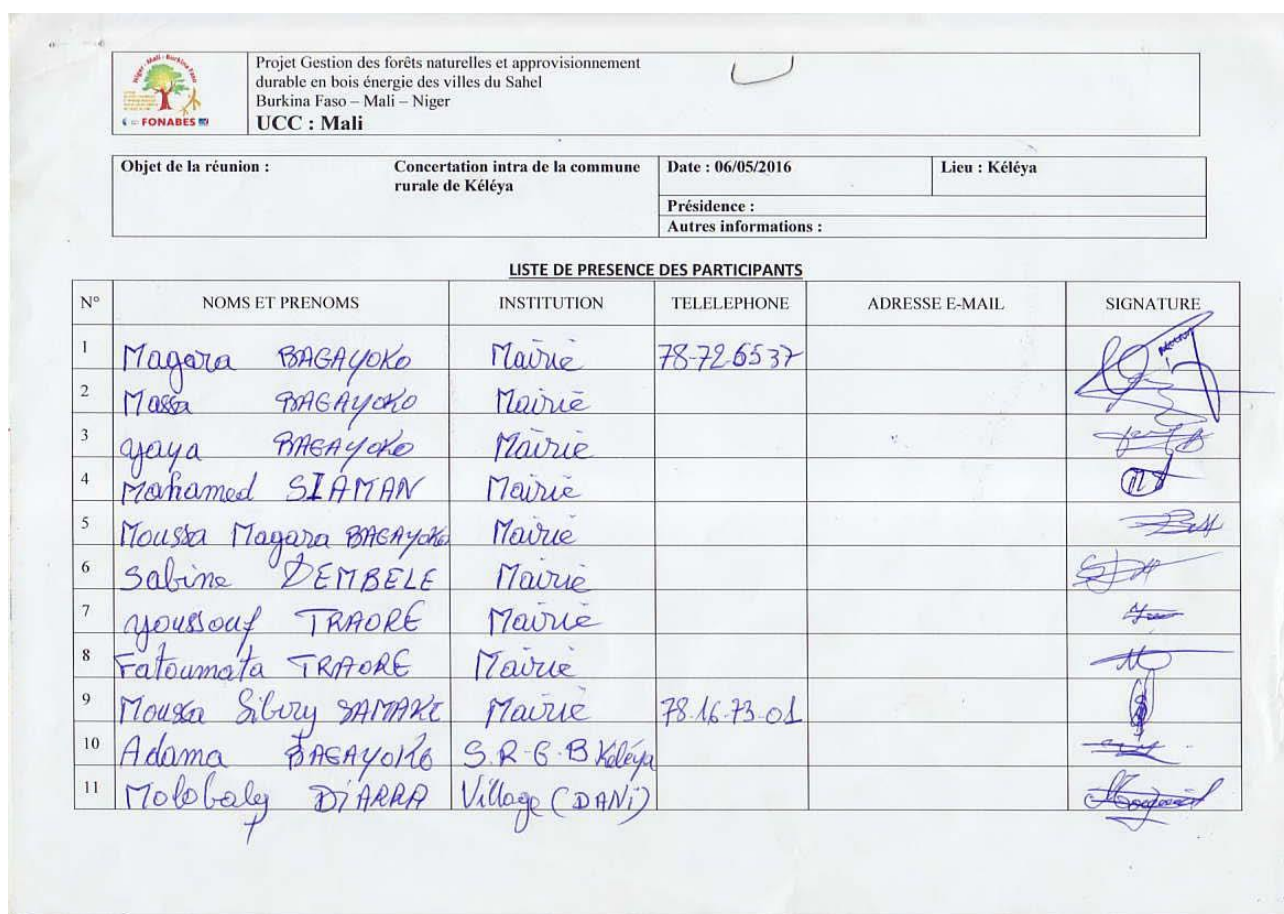 Niger - Mali - Burkina Faso
FONABES
Projet Gestion des forêts naturelles et approvisionnement
durable en bois énergie des villes du Sahel
Burkina Faso – Mali – Niger
UCC : Mali
Objet de la réunion : Concertation intra de la commune rurale de Kéléya
Date : 06/05/2016 Lieu : Kéléya
Présidence :
Autres informations :
LISTE DE PRESENCE DES PARTICIPANTS
N° NOMS ET PRENOMS INSTITUTION TELELEPHONE ADRESSE E-MAIL SIGNATURE
1 Magara BAGAYOKO Mairie 78-72 65 37
2 Massa BAGAYOKO Mairie
3 Yaya BAGAYOKO Mairie
4 Mohamed SIAMAN Mairie
5 Moussa Magara BAGAYOKO Mairie
6 Sabine DEMBELE Mairie
7 Youssouf TRAORE Mairie
8 Fatoumata TRAORE Mairie
9 Moussa Sibiry SAMAKE Mairie 78-16-73-01
10 Adama BAGAYOKO S.R-G-B Keléya
11 Molobaly DIARRA Village (DANI)